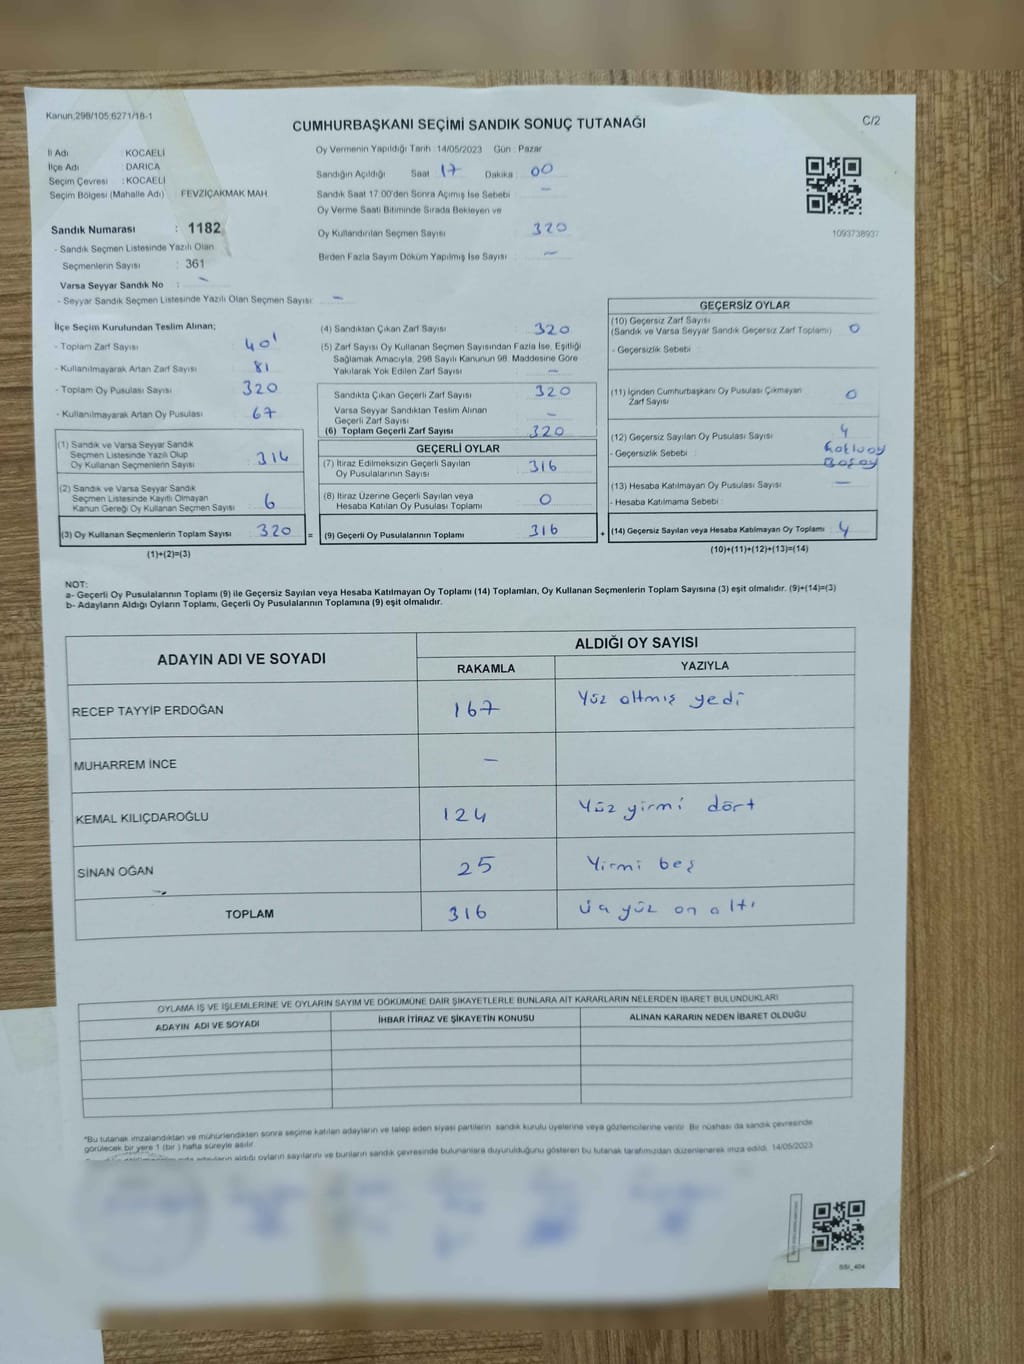 Kanun:298/105,6271/18-1
CUMHURBAŞKANI SEÇİMİ SANDIK SONUÇ TUTANAĞI
C/2
İl Adı : KOCAELİ
İlçe Adı : DARICA
Seçim Çevresi : KOCAELİ
Seçim Bölgesi (Mahalle Adı) : FEVZİÇAKMAK MAH.
Oy Vermenin Yapıldığı Tarih : 14/05/2023 Gün : Pazar
Sandığın Açıldığı Saat 17 Dakika : 00
Sandık Saat 17.00'den Sonra Açılmış İse Sebebi : —
Oy Verme Saati Bitiminde Sırada Bekleyen ve
Oy Kullandırılan Seçmen Sayısı : 320
Birden Fazla Sayım Döküm Yapılmış İse Sayısı : —
1093738937
Sandık Numarası : 1182
- Sandık Seçmen Listesinde Yazılı Olan
Seçmenlerin Sayısı : 361
Varsa Seyyar Sandık No : —
- Seyyar Sandık Seçmen Listesinde Yazılı Olan Seçmen Sayısı : —
İlçe Seçim Kurulundan Teslim Alınan;
- Toplam Zarf Sayısı : 401
- Kullanılmayarak Artan Zarf Sayısı : 81
- Toplam Oy Pusulası Sayısı : 320
- Kullanılmayarak Artan Oy Pusulası : 67
(1) Sandık ve Varsa Seyyar Sandık
Seçmen Listesinde Yazılı Olup
Oy Kullanan Seçmenlerin Sayısı : 314
(2) Sandık ve Varsa Seyyar Sandık
Seçmen Listesinde Kayıtlı Olmayan
Kanun Gereği Oy Kullanan Seçmen Sayısı : 6
(3) Oy Kullanan Seçmenlerin Toplam Sayısı : 320
(1)+(2)=(3)
(4) Sandıktan Çıkan Zarf Sayısı : 320
(5) Zarf Sayısı Oy Kullanan Seçmen Sayısından Fazla İse, Eşitliği
Sağlamak Amacıyla, 298 Sayılı Kanunun 98. Maddesine Göre
Yakılarak Yok Edilen Zarf Sayısı : —
Sandıkta Çıkan Geçerli Zarf Sayısı : 320
Varsa Seyyar Sandıktan Teslim Alınan
Geçerli Zarf Sayısı : —
(6) Toplam Geçerli Zarf Sayısı : 320
GEÇERLİ OYLAR
(7) İtiraz Edilmeksizin Geçerli Sayılan
Oy Pusulalarının Sayısı : 316
(8) İtiraz Üzerine Geçerli Sayılan veya
Hesaba Katılan Oy Pusulası Toplamı : 0
= (9) Geçerli Oy Pusulalarının Toplamı : 316 +
GEÇERSİZ OYLAR
(10) Geçersiz Zarf Sayısı
(Sandık ve Varsa Seyyar Sandık Geçersiz Zarf Toplamı) : 0
- Geçersizlik Sebebi :
(11) İçinden Cumhurbaşkanı Oy Pusulası Çıkmayan
Zarf Sayısı : 0
(12) Geçersiz Sayılan Oy Pusulası Sayısı : 4
- Geçersizlik Sebebi :
(13) Hesaba Katılmayan Oy Pusulası Sayısı : —
- Hesaba Katılmama Sebebi :
(14) Geçersiz Sayılan veya Hesaba Katılmayan Oy Toplamı : 4
(10)+(11)+(12)+(13)=(14)
NOT:
a- Geçerli Oy Pusulalarının Toplamı (9) ile Geçersiz Sayılan veya Hesaba Katılmayan Oy Toplamı (14) Toplamları, Oy Kullanan Seçmenlerin Toplam Sayısına (3) eşit olmalıdır. (9)+(14)=(3)
b- Adayların Aldığı Oyların Toplamı, Geçerli Oy Pusulalarının Toplamına (9) eşit olmalıdır.
ADAYIN ADI VE SOYADI
ALDIĞI OY SAYISI
RAKAMLA YAZIYLA
RECEP TAYYİP ERDOĞAN 167 Yüz altmış yedi
MUHARREM İNCE —
KEMAL KILIÇDAROĞLU 124 Yüz yirmi dört
SİNAN OĞAN 25 Yirmi beş
TOPLAM 316 üç yüz on altı
OYLAMA İŞ VE İŞLEMLERİNE VE OYLARIN SAYIM VE DÖKÜMÜNE DAİR ŞİKAYETLERLE BUNLARA AİT KARARLARIN NELERDEN İBARET BULUNDUKLARI
ADAYIN ADI VE SOYADI İHBAR İTİRAZ VE ŞİKAYETİN KONUSU ALINAN KARARIN NEDEN İBARET OLDUĞU
"Bu tutanak imzalandıktan ve mühürlendikten sonra seçime katılan adayların ve talep eden siyasi partilerin sandık kurulu üyelerine veya gözlemcilerine verilir. Bir nüshası da sandık çevresinde
görülecek bir yere 1 (bir) hafta süreyle asılır.
adayların aldığı oyların sayılarını ve bunların sandık çevresinde bulunanlara duyurulduğunu gösteren bu tutanak tarafımızdan düzenlenerek imza edildi. 14/05/2023
SSI_404